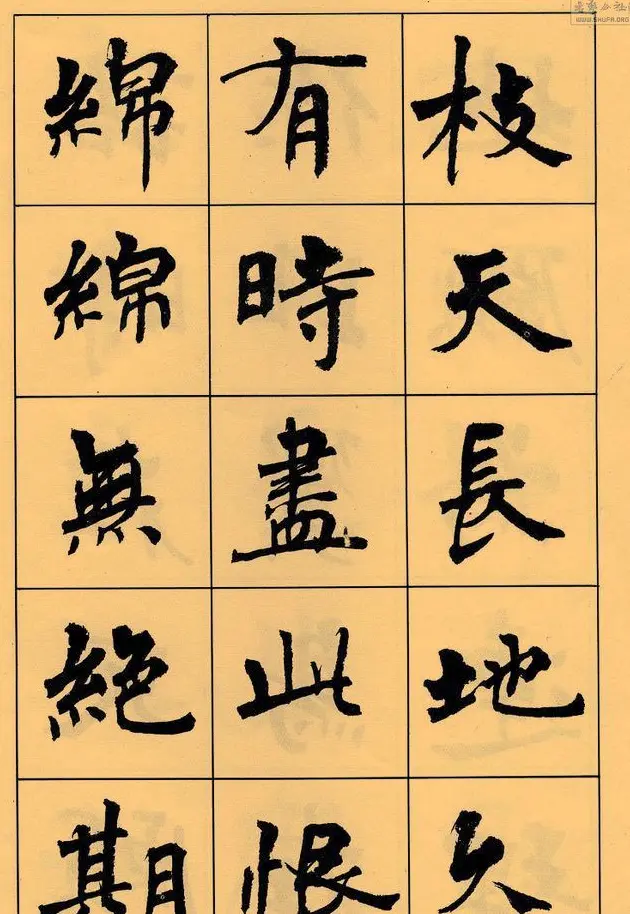 枝天長地久
有時盡此恨
綿綿無絕期
WWW.SHUFA.ORG